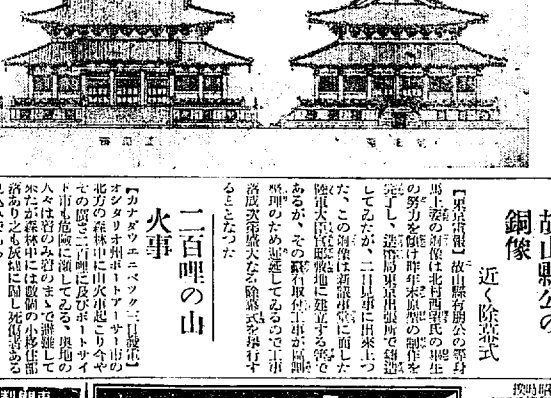 故山縣公の
銅像
近く除幕式
【東京電報】故山縣有朋公の等身
馬上姿の銅像は北村西望氏の畢生
の努力を傾け昨年末原型の制作を
完了し、造幣局東京出張所で鑄造
してゐたが、二日見事に出來上つ
た、この銅像は新議事堂に面した
陸軍大臣官邸敷地に建立する筈で
あるが、その
整理のため遲延してゐるので工事
落成次第盛大なる除幕式を擧行す
ることなつた
二百哩の山
火事
【カナダウエニペツグ三日
オンタリオ州ポートアーサー市の
北方の森林中に山火事起こり今や
その廣さ二百哩に及びポートサイ
ド市も危險に瀕してゐる、奥地の
人々は着のみ着のまゝで避難して
來たが森林中には數個の小移住部
落あり之も灰燼に歸し死傷者ある